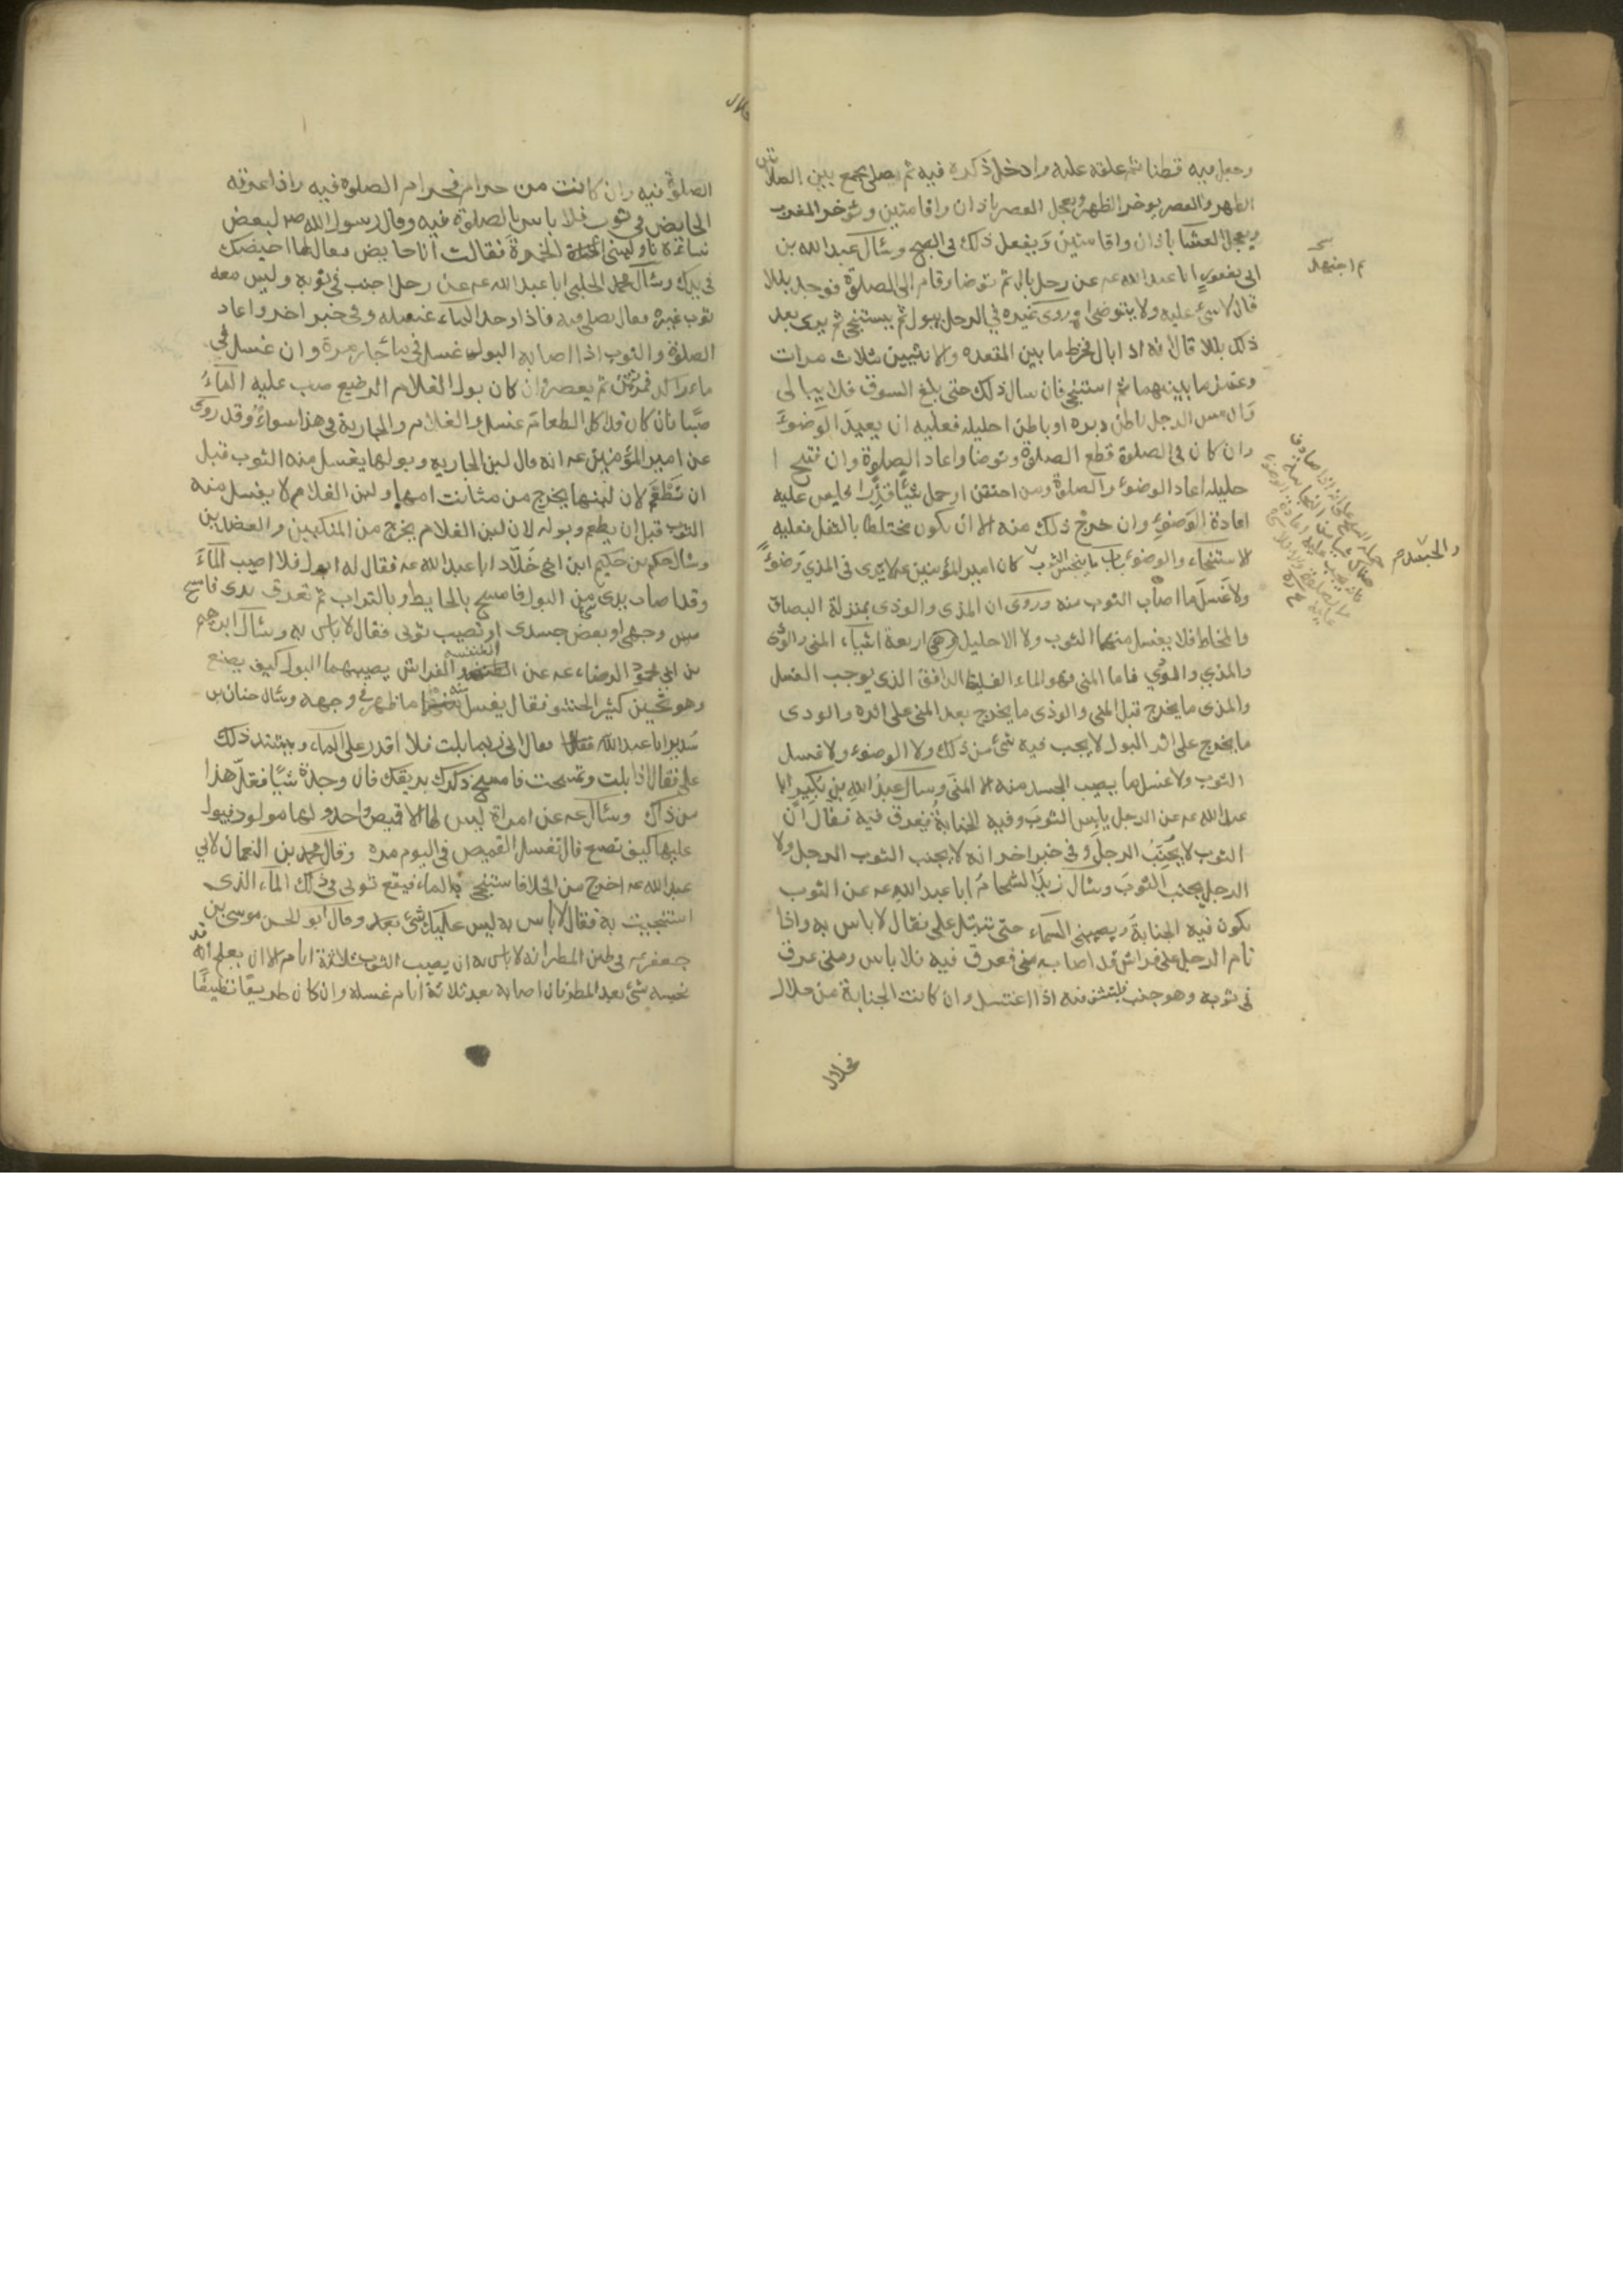 وجعل فيه قطنا ثم علقه عليه وادخل ذكره فيه ثم يصلي يجمع بين الصلاتين
الظهر والعصر يوخر الظهر ويعجل العصر باذان واقامتين ويوخر المغرب
ويعجل العشا باذان واقامتين ويفعل ذلك في الصبح وسأل عبد الله بن
ابي يعفور ابا عبد الله عه عن رجل بال ثم توضا وقام الى الصلوة فوجد بللا
قال لا شئ عليه ولا يتوضى وروى غيره في الرجل يبول ثم يستنجي ثم يرى بعد
ذلك بللا قال انه اذا بال فخرط ما بين المقعده والانثيين ثلاث مرات
وغمز ما بينهما ثم استنجى فان سال ذلك حتى بلغ السوق فلا يبالى
وان مس الرجل باطن دبره او باطن احليله فعليه ان يعيد الوضوء
وان كان في الصلوة قطع الصلوة وتوضا واعاد الصلوة وان فتح ا
حليله اعاد الوضوء والصلوة ومن احتقن او حمل شيئا قذرا فليس عليه
اعادة الوضوء وان خرج ذلك منه الا ان يكون مختلطا بالثفل فعليه
الاستنجاء والوضوء باب ما ينجس الثوب كان امير المؤمنين عه لا يرى في المذي وضوءً
ولا غسل ما اصاب الثوب منه وروى ان المذى والوذى بمنزلة البصاق
والمخاط فلا يغسل منهما الثوب ولا الاحليل وهي اربعة اشياء المنى والوذى
والمذي والودي فاما المنى فهو الماء الغليظ الدافق الذى يوجب الغسل
والمذى ما يخرج قبل المنى والوذى ما يخرج بعد المنى على اثره والودى
ما يخرج على اثر البول لا يجب فيه شئ من ذلك ولا الوضوء ولا غسل
الثوب ولا غسل ما يصيب الجسد منه الا المنى وسال عبد الله بن بكير ابا
عبد الله عه عن الرجل يلبس الثوب وفيه الجنابة فيعرق فيه فقال ان
الثوب لا يجنب الرجل وفي خبر اخر انه لا يجنب الثوب الرجل ولا
الرجل يجنب الثوب وسأل زيد الشحام ابا عبد الله عه عن الثوب
يكون فيه الجنابة ويصيبني السماء حتى تبتل على فقال لا باس به واذا
نام الرجل على فراش قد اصابه منى فعرق فيه فلا باس ومتى عرق
في ثوبه وهو جنب فليتنشف فيه اذا اغتسل وان كانت الجنابة من حلال
فحلال
م اجتهد
والحبشه م
الصلوة فيه وان كانت من حرام فحرام الصلوة فيه واذا عرقه
الحايض في ثوب فلا باس بالصلوة فيه وقال رسول الله ص لبعض
نسائه ناوليني الخمرة فقالت انا حايض فقال لها احيضك
في يدك وسأل محمد الحلبي ابا عبد الله عه عن رجل اجنب في ثوبه وليس معه
ثوب غيره فقال يصلي فيه فاذا وجد الماء غسله وفي خبر اخر واعاد
الصلوة والثوب اذا اصابه البول غسل في ماء جار مرة وان غسل في
ماء راكد فمرتين ثم يعصر وان كان بول الغلام الرضيع صب عليه الماء
صبا فان كان قد اكل الطعام غسل والغلام والجارية في هذا سواء وقد روى
عن امير المؤمنين عه انه قال لبن الجاريه وبولها يغسل منه الثوب قبل
ان تطعم لان لبنها يخرج من مثانت امها ولبن الغلام لا يغسل منه
الثوب قبل ان يطعم وبوله لان لبن الغلام يخرج من المنكبين والعضدين
وسأل حكم بن حكيم ابن اخي خلاد ابا عبد الله عه فقال له ابول فلا اصيب الماء
وقد اصاب يدي من البول فامسح بالحايط وبالتراب ثم تعرق يدى فامسح
مس وجهي او بعض جسدى او تصيب ثوبي فقال لا باس به وسأل ابرهيم
بن ابي محمود الرضاء عه عن الطنفسه والفراش يصيبهما البول كيف يصنع
وهو ثخين كثير الحشو فقال يغسل منه ما ظهر في وجهه وسأل حنان بن
سدير ابا عبد الله فقال اني ربما بلت فلا اقدر على الماء ويشتد ذلك
علي فقال اذا بلت وتمسحت فامسح ذكرك بريقك فان وجدت شيئا فقل هذا
من ذاك وسأل عه عن امراة ليس لها الا قميص واحد ولها مولود فيبول
عليها كيف تصنع قال تغسل القميص في اليوم مره وقال محمد بن النعمان لابي
عبد الله عه اخرج من الخلا فاستنجي بالماء فيقع ثوبي في ذلك الماء الذى
استنجيت به فقال لا باس به ليس عليك شئ بعد وقال ابو الحسن موسى بن
جعفر عه في طين المطر انه لا باس به ان يصيب الثوب ثلاثة ايام الا ان يعلم انه قد
نجسه شئ بعد المطر فان اصابه بعد ثلاثة ايام غسله وان كان طريقا نظيفا